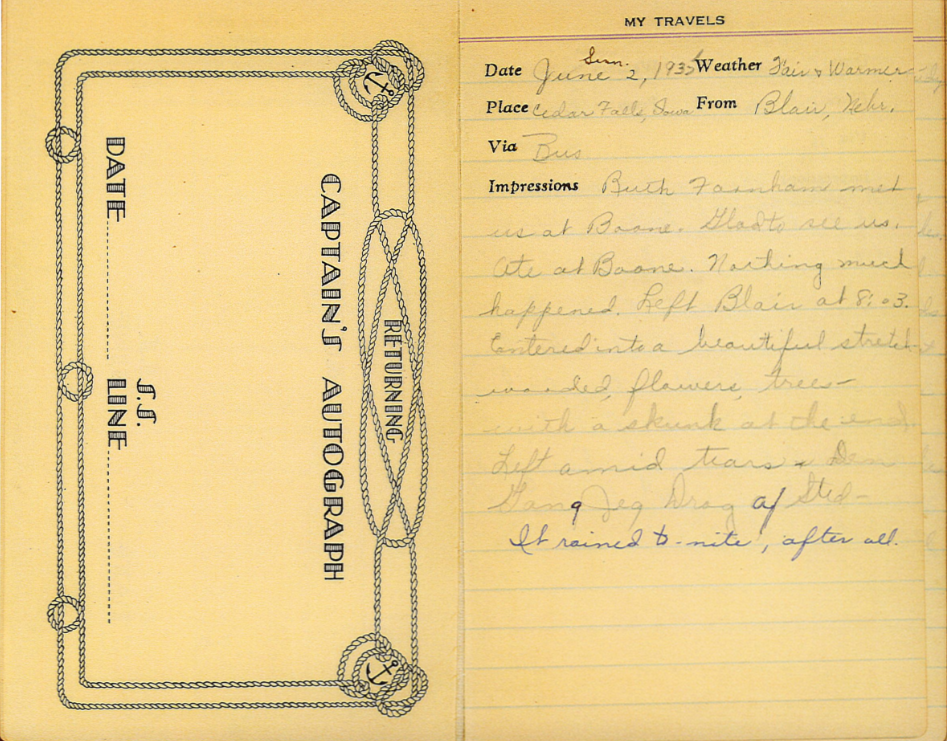 CAPTAIN'S AUTOGRAPH
RETURNING
DATE
S.S.
LINE
MY TRAVELS
Date Sun. June 2, 1935 Weather Fair & Warmer
Place Cedar Falls, Iowa From Blair, Nebr.
Via Bus
Impressions Ruth Farnham met
us at Boone. Glad to see us.
Ate at Boone. Nothing much
happened. Left Blair at 8:03.
Entered into a beautiful stretch-
wooded, flowers, trees-
with a skunk at the end
Left amid tears & Den
Gang Jeg Drog af Sted-
It rained to-nite, after all.